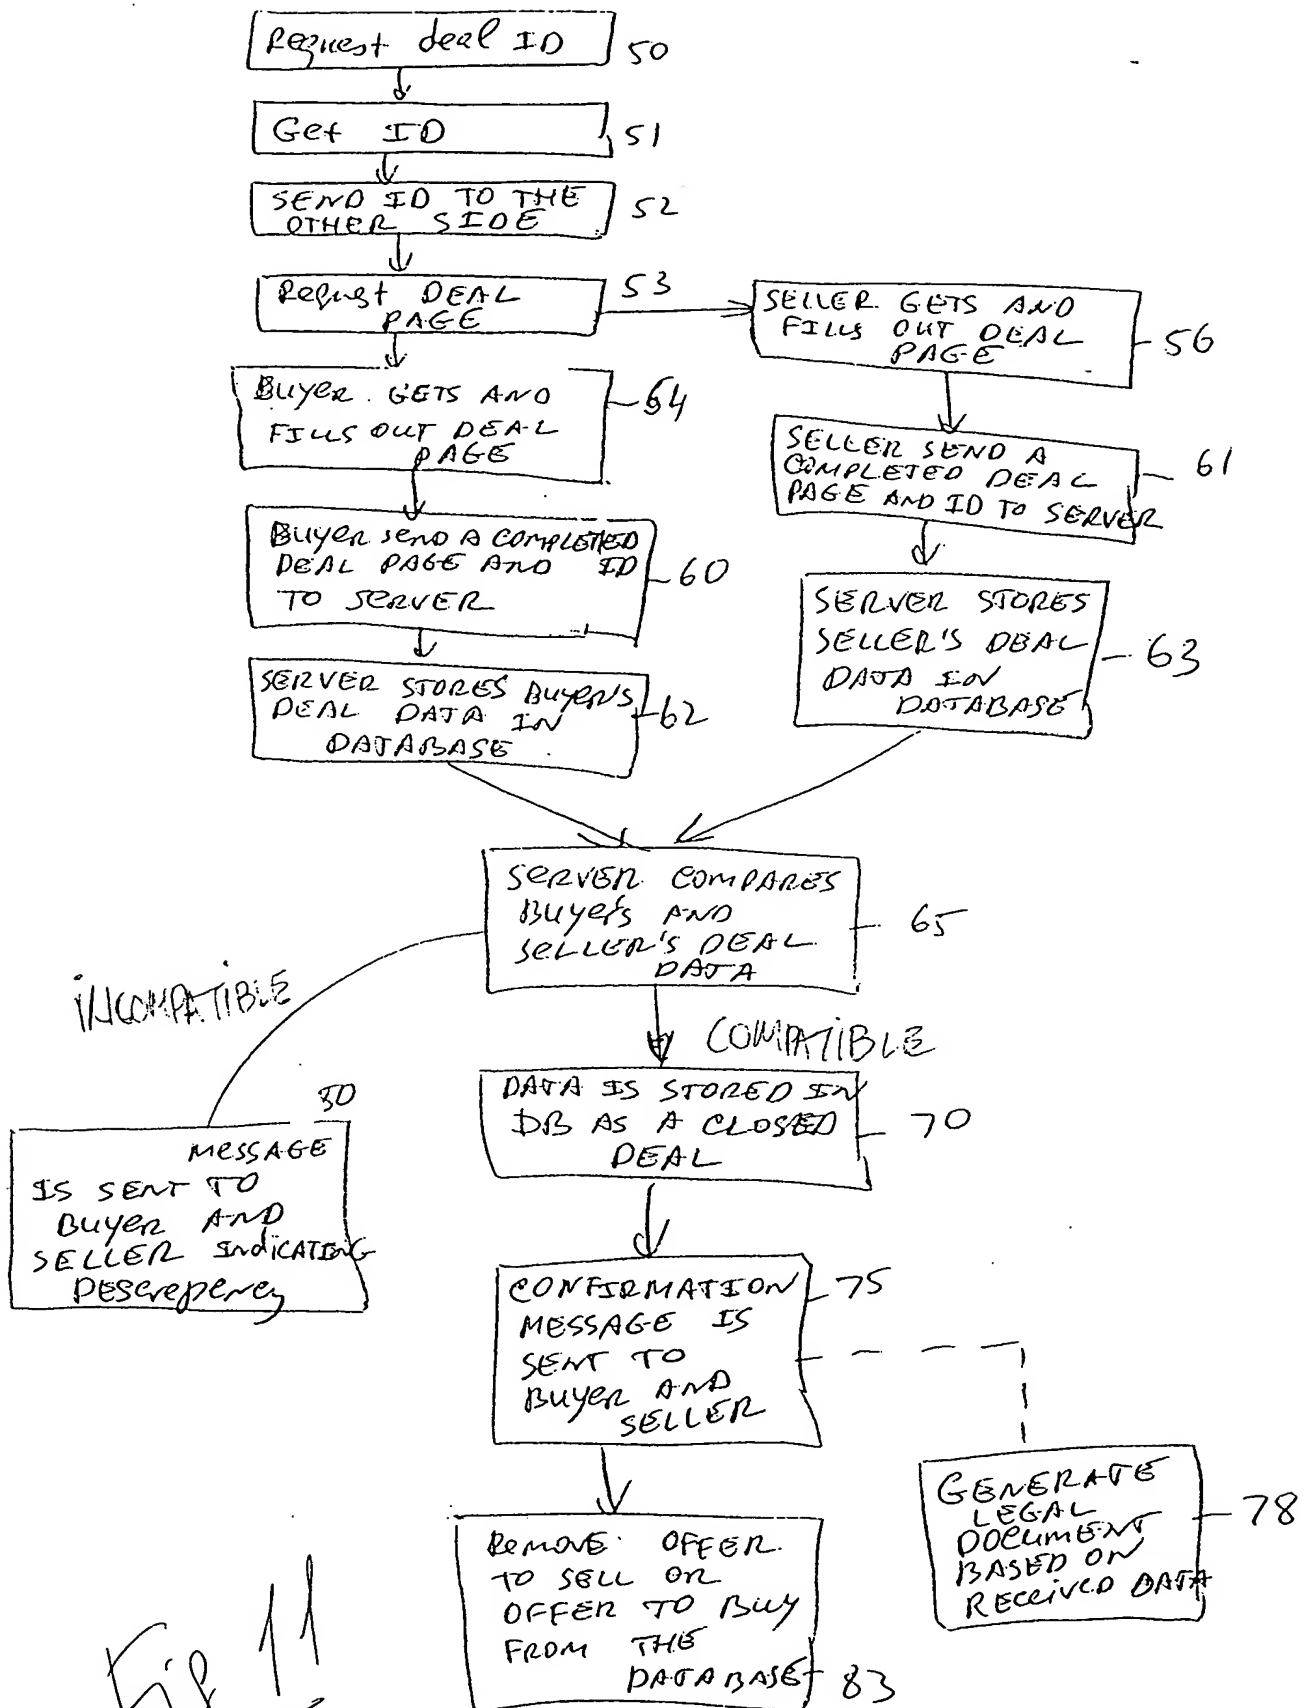 Request deal ID
50
Get ID
51
SEND ID TO THE
OTHER SIDE
52
Request DEAL
PAGE
53
SELLER GETS AND
FILLS OUT DEAL
PAGE
56
BUYER GETS AND
FILLS OUT DEAL
PAGE
54
SELLER SEND A
COMPLETED DEAL
PAGE AND ID TO SERVER
61
BUYER SEND A COMPLETED
DEAL PAGE AND ID
TO SERVER
60
SERVER STORES
SELLER'S DEAL
DATA IN
DATABASE
63
SERVER STORES BUYER'S
DEAL DATA IN
DATABASE
62
SERVER COMPARES
BUYER'S AND
SELLER'S DEAL
DATA
65
INCOMPATIBLE
COMPATIBLE
DATA IS STORED IN
DB AS A CLOSED
DEAL
70
80
MESSAGE
IS SENT TO
BUYER AND
SELLER INDICATING
DESCREPENCY
CONFIRMATION
MESSAGE IS
SENT TO
BUYER AND
SELLER
75
GENERATE
LEGAL
DOCUMENT
BASED ON
RECEIVED DATA
78
REMOVE OFFER
TO SELL OR
OFFER TO BUY
FROM THE
DATABASE
83
Fig 11